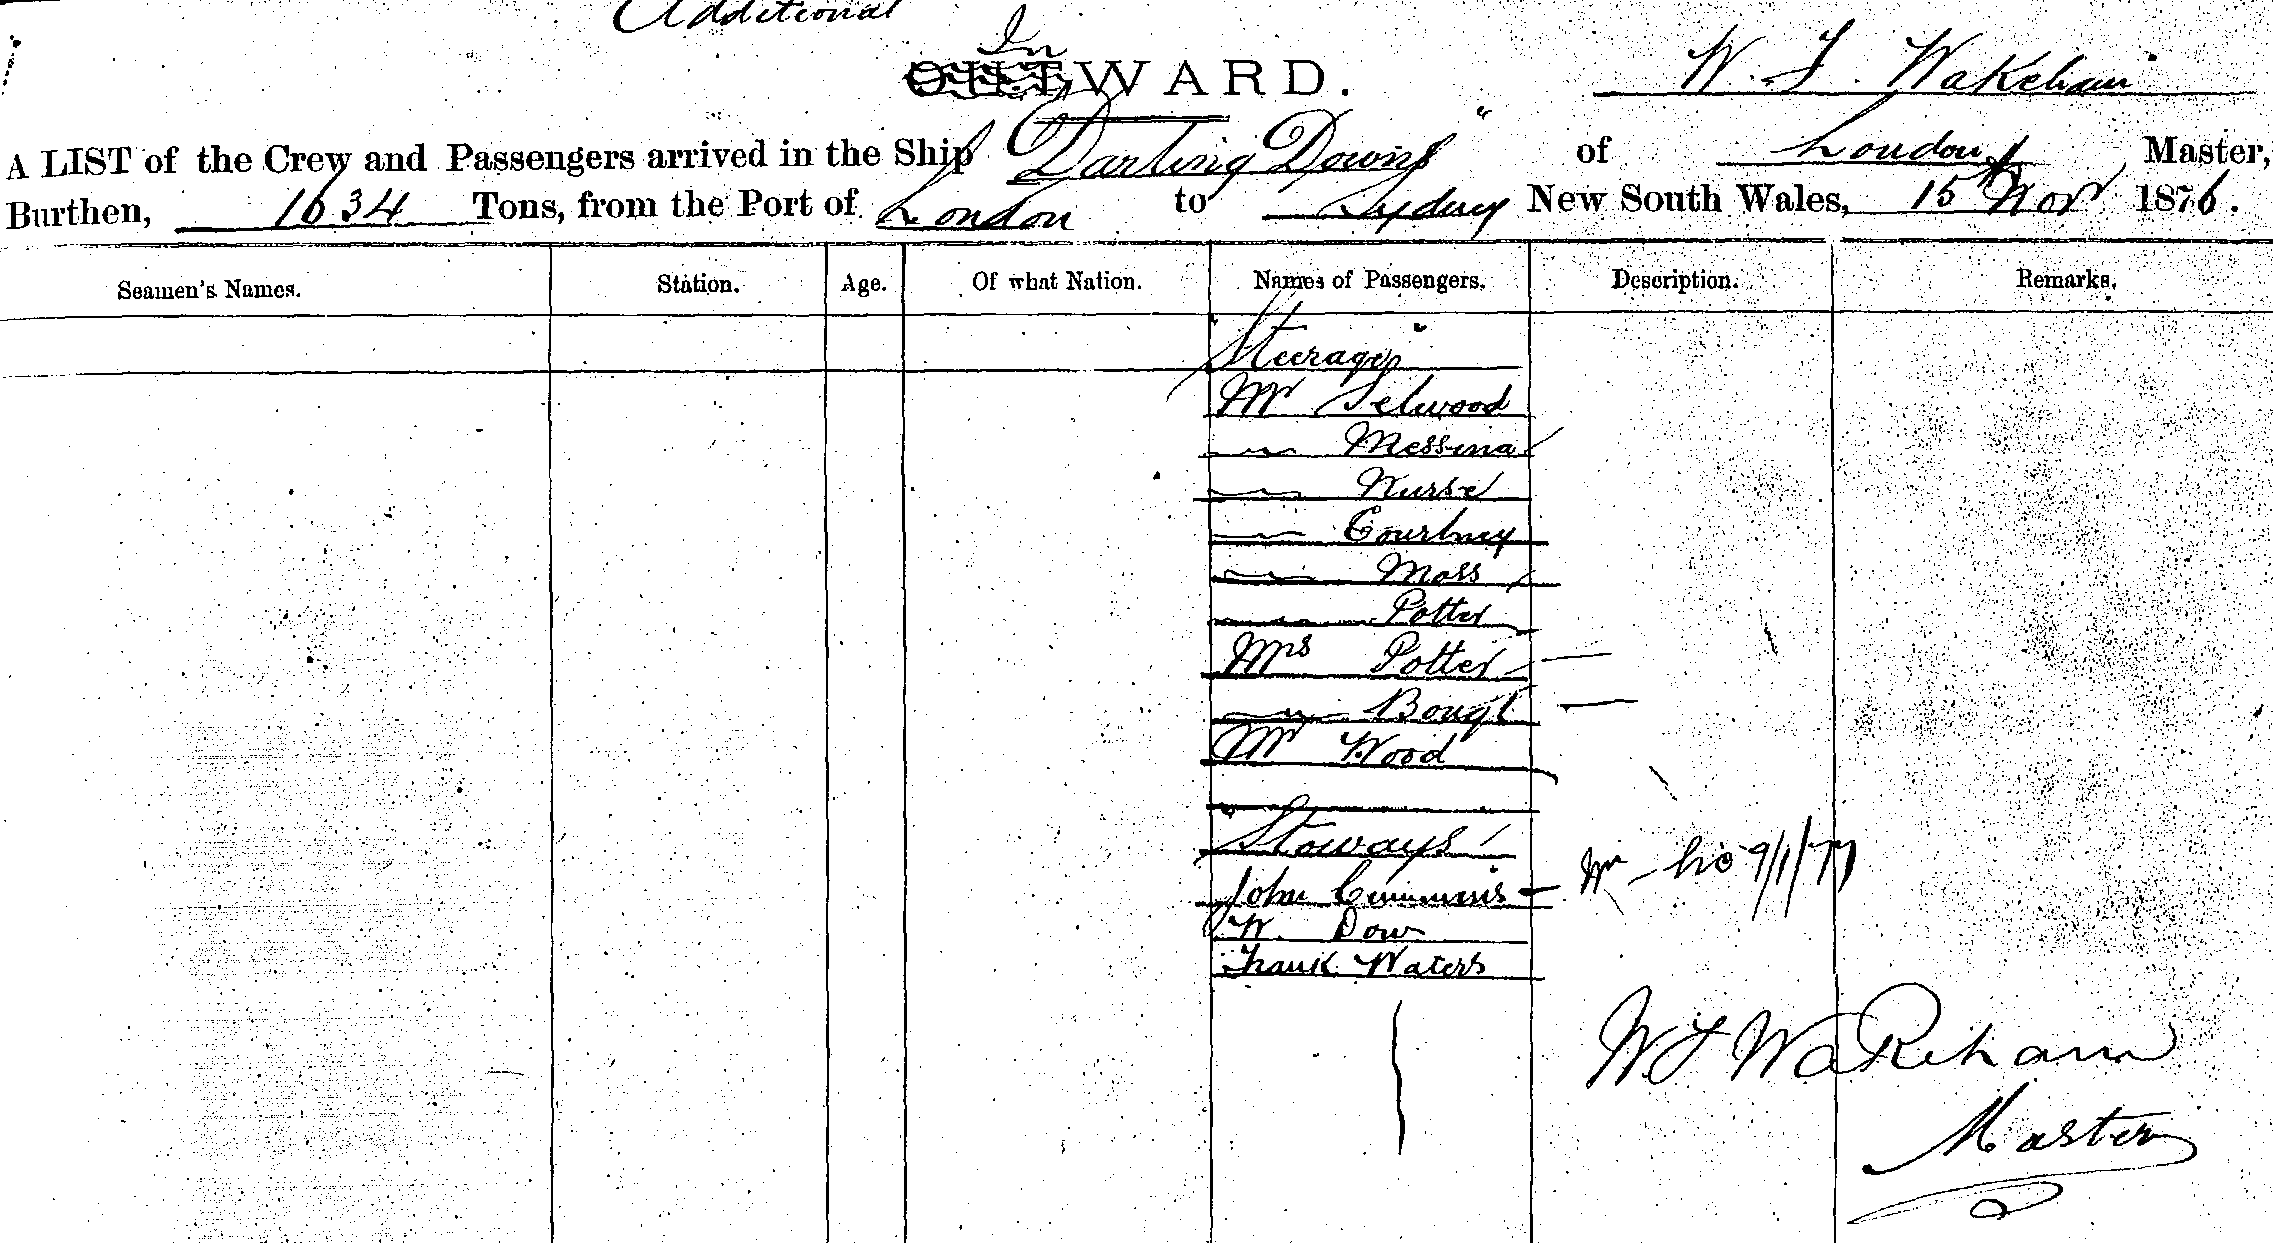 Additional
In
OUTWARD.
W. F. Wakeham
A LIST of the Crew and Passengers arrived in the Ship "Darling Downs" of London, Master,
Burthen, 1634 Tons, from the Port of London to Sydney New South Wales, 15th Novr 1876.
Seamen's Names. Station. Age. Of what Nation. Names of Passengers. Description. Remarks.
Steerage
Mr Selwood
" Messina
" Nurse
" Courtney
" Moss
" Potter
Mrs Potter
" Bough
Mr Wood
Stoways
John Cummins 9/1/77
W. Dow
Frank Waters
W F Wakeham
Master